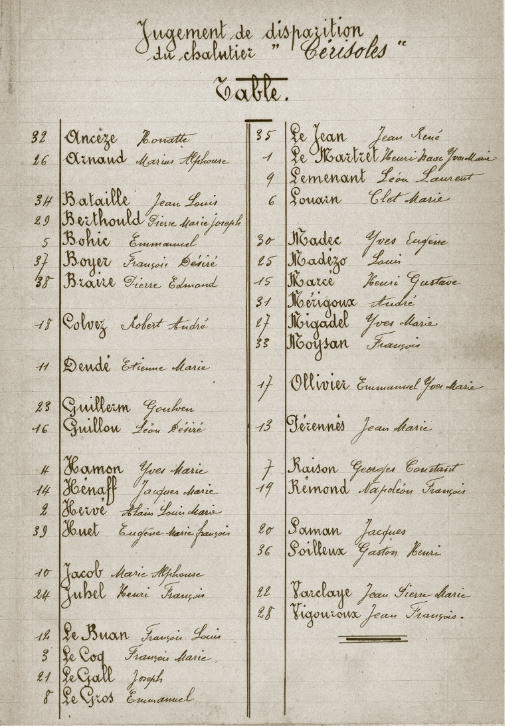 Jugement de disparition
du chalutier " Cérisoles "
Table.
32 Ancèze Honatte
26 Arnaud Marius Alphonse
34 Bataille Jean Louis
29 Berthould Pierre Marie Joseph
5 Bohic Emmanuel
37 Boyer François Désiré
38 Braire Pierre Edmond
18 Colvez Robert André
11 Deudé Etienne Marie
23 Guillerm Goulven
16 Guillou Léon Désiré
4 Hamon Yves Marie
14 Hénaff Jacques Marie
2 Hervé Alain Louis Marie
39 Huet Eugène Marie François
10 Jacob Marie Alphonse
24 Juhel Henri François
12 Le Buan François Louis
3 Le Coq François Marie.
21 Le Gall Joseph
8 Le Gros Emmanuel
35 Le Jean Jean René
1 Le Martret Henri Yves Marie
9 Lemenant Léon Laurent
6 Louarn Clet Marie
30 Madec Yves Eugène
25 Madézo Louis
15 Marce Henri Gustave
31 Mérigoux André
27 Migadel Yves Marie
33 Moysan François
17 Ollivier Emmanuel Yves Marie
13 Pérennés Jean Marie
7 Raison Georges Constant
19 Rémond Napoléon François
20 Saman Jacques
36 Soilleux Gaston Henri
22 Varclaye Jean Pierre Marie
28 Vigouroux Jean François.